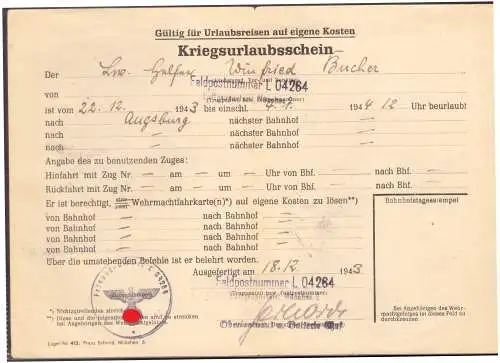 Gültig für Urlaubsreisen auf eigene Kosten
Kriegsurlaubsschein
Der Lw. Helfer Winfried Bucher
Feldpostnummer L 04264
von
ist vom 22.12. 1943 bis einschl. 4.1. 1944 12 Uhr beurlaubt
nach Augsburg nächster Bahnhof —
nach — nächster Bahnhof —
nach — nächster Bahnhof —
Angabe des zu benutzenden Zuges:
Hinfahrt mit Zug Nr. — am — um — Uhr von Bhf. — nach Bhf. —
Rückfahrt mit Zug Nr. — am — um — Uhr von Bhf. — nach Bhf. —
Er ist berechtigt, Wehrmachtfahrkarte(n)*) auf eigene Kosten zu lösen**)
von Bahnhof — nach Bahnhof —
von Bahnhof — nach Bahnhof —
von Bahnhof — nach Bahnhof —
von Bahnhof — nach Bahnhof —
Bahnhofstagesstempel
Über die umstehenden Befehle ist er belehrt worden.
Ausgefertigt am 18.12. 1943
Feldpostnummer L 04264
Bei Angehörigen des Wehrmachtgefolges ist dieses Feld zu durchkreuzen
*) Nichtzutreffendes streichen
**) Diese und die sind zu streichen
bei Angehörigen des Wehrmachtgefolges.
Lager Nr. 412. Franz Schmid, München 5